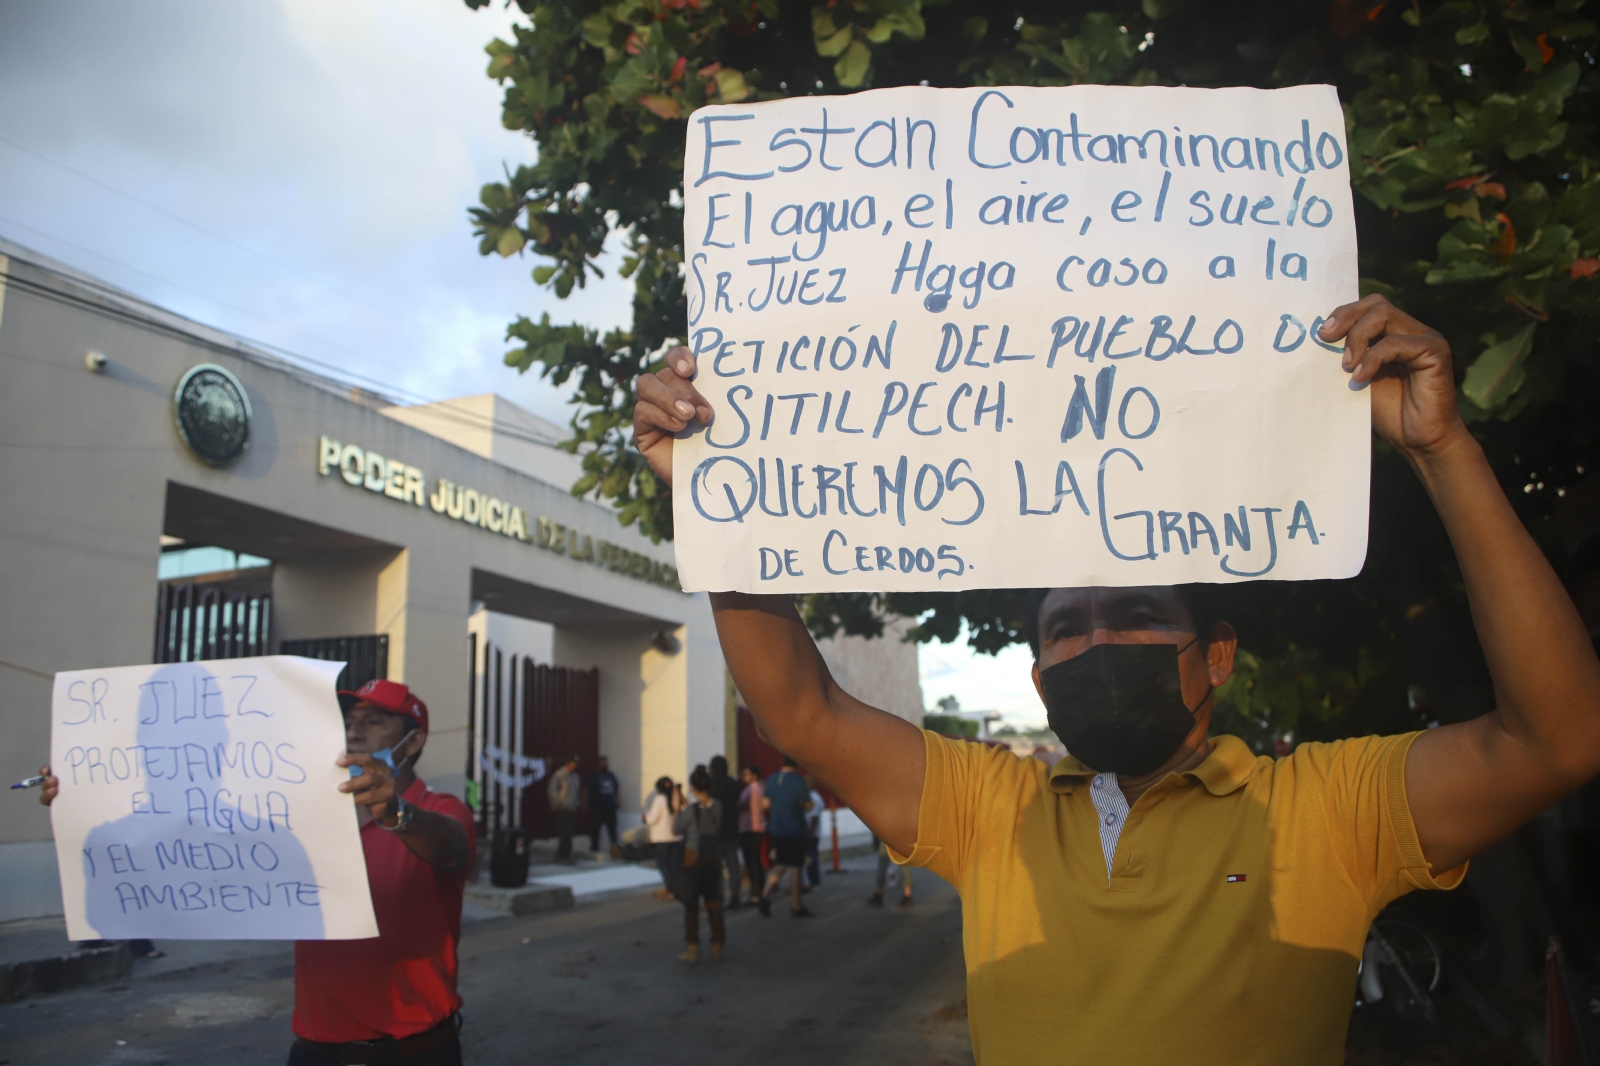 Estan Contaminando
El agua, el aire, el suelo
Sr. Juez Haga caso a la
PETICIÓN DEL PUEBLO DE
SITILPECH. NO
QUEREMOS LA GRANJA.
DE CERDOS.
PODER JUDICIAL DE LA FEDERAC
SR. JUEZ
PROTEJAMOS
EL AGUA
Y EL MEDIO
AMBIENTE